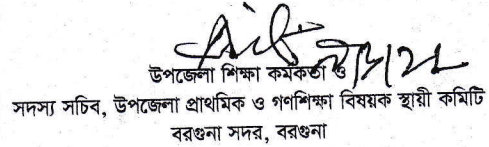 উপজেলা শিক্ষা কর্মকর্তা ও
সদস্য সচিব, উপজেলা প্রাথমিক ও গণশিক্ষা বিষয়ক স্থায়ী কমিটি
বরগুনা সদর, বরগুনা